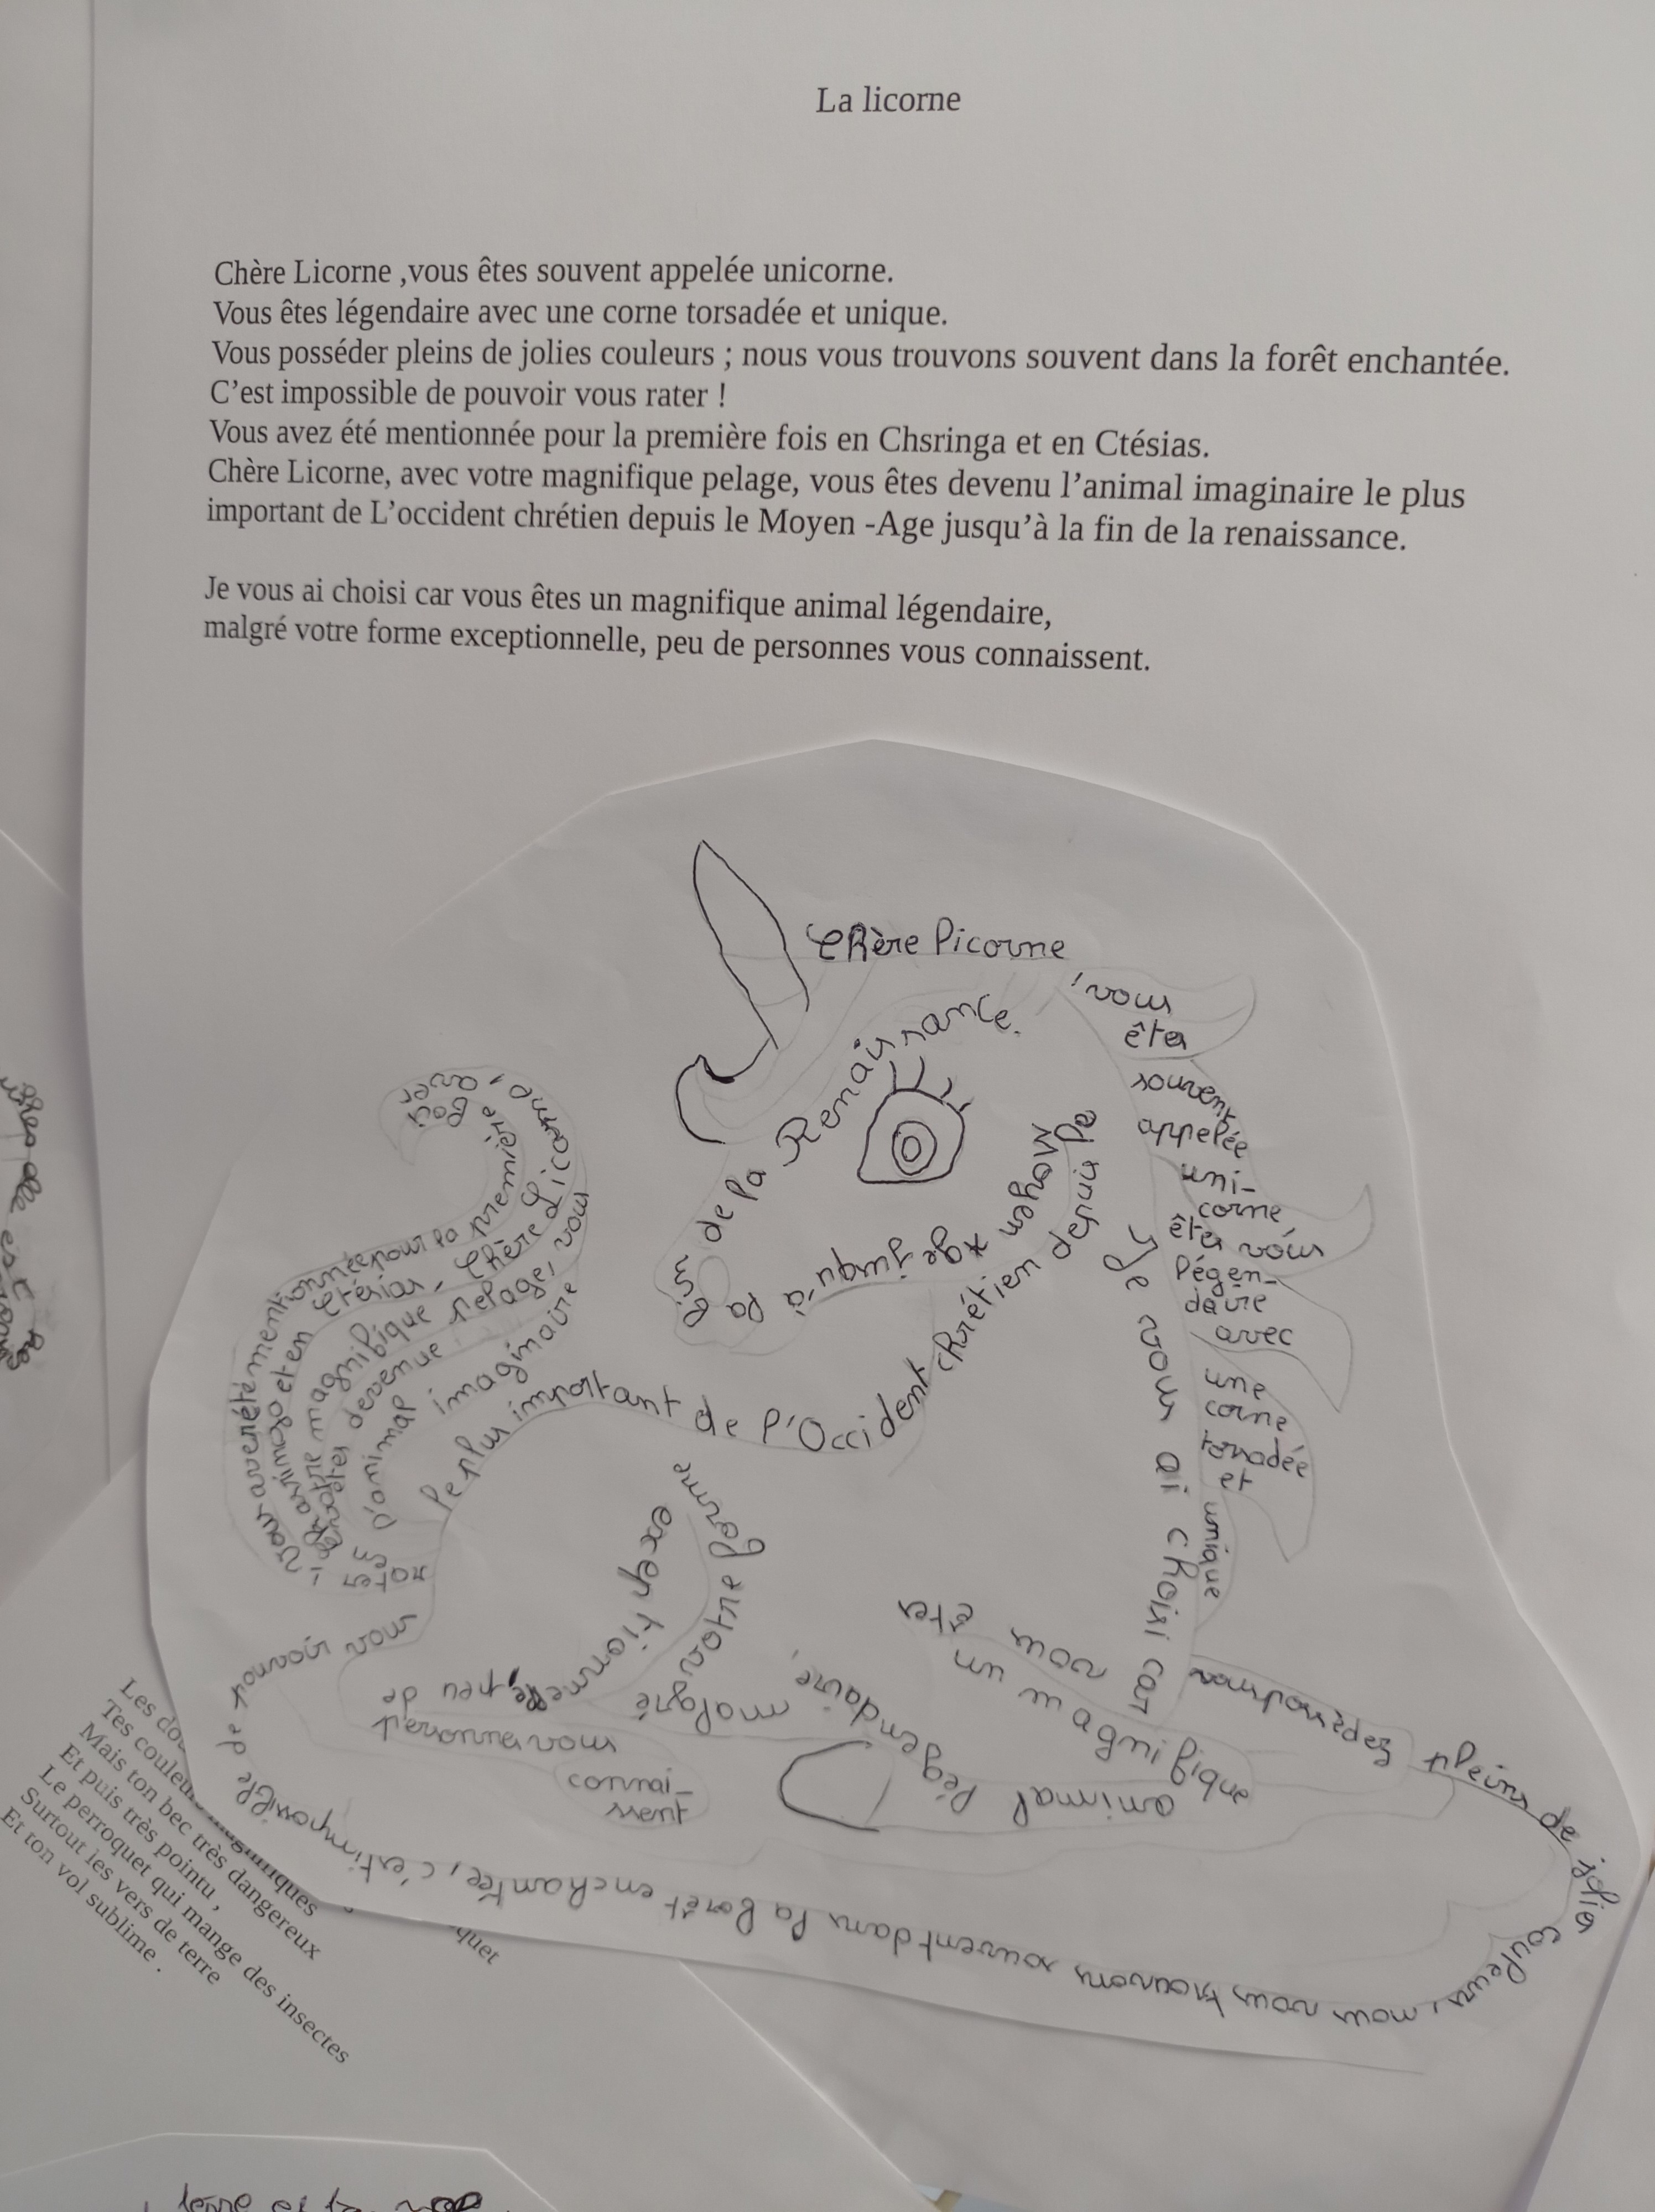 La licorne
Chère Licorne ,vous êtes souvent appelée unicorne.
Vous êtes légendaire avec une corne torsadée et unique.
Vous posséder pleins de jolies couleurs ; nous vous trouvons souvent dans la forêt enchantée.
C’est impossible de pouvoir vous rater !
Vous avez été mentionnée pour la première fois en Chsringa et en Ctésias.
Chère Licorne, avec votre magnifique pelage, vous êtes devenu l’animal imaginaire le plus
important de L’occident chrétien depuis le Moyen -Age jusqu’à la fin de la renaissance.
Je vous ai choisi car vous êtes un magnifique animal légendaire,
malgré votre forme exceptionnelle, peu de personnes vous connaissent.
Chère licorne
, vous
êtes
souvent
appelée
uni-
corne,
êtes vous
légen-
daire
avec
une
corne
torsadée
et
unique
vous possèdez pleins de jolies couleurs, nous vous trouvons souvent dans la forêt enchantée, c'est impossible de pouvoir vous
rater
Vous avez été mentionnée pour la première
fois
et en Ctésias, Chère Licorne,
votre magnifique pelage, vous
êtes devenue
l'animal imaginaire
le plus important de l'Occident chrétien depuis le
Moyen Age jusqu'à la
fin de la Renaissance.
Je vous ai choisi car
vous êtes
un magnifique
animal légendaire,
malgré votre forme
exceptionnelle, peu de
personnes vous
connai-
ssent
Les
Tes couleurs
Mais ton bec très dangereux
Et puis très pointu ,
Le perroquet qui mange des insectes
Surtout les vers de terre
Et ton vol sublime .
quet
terre et